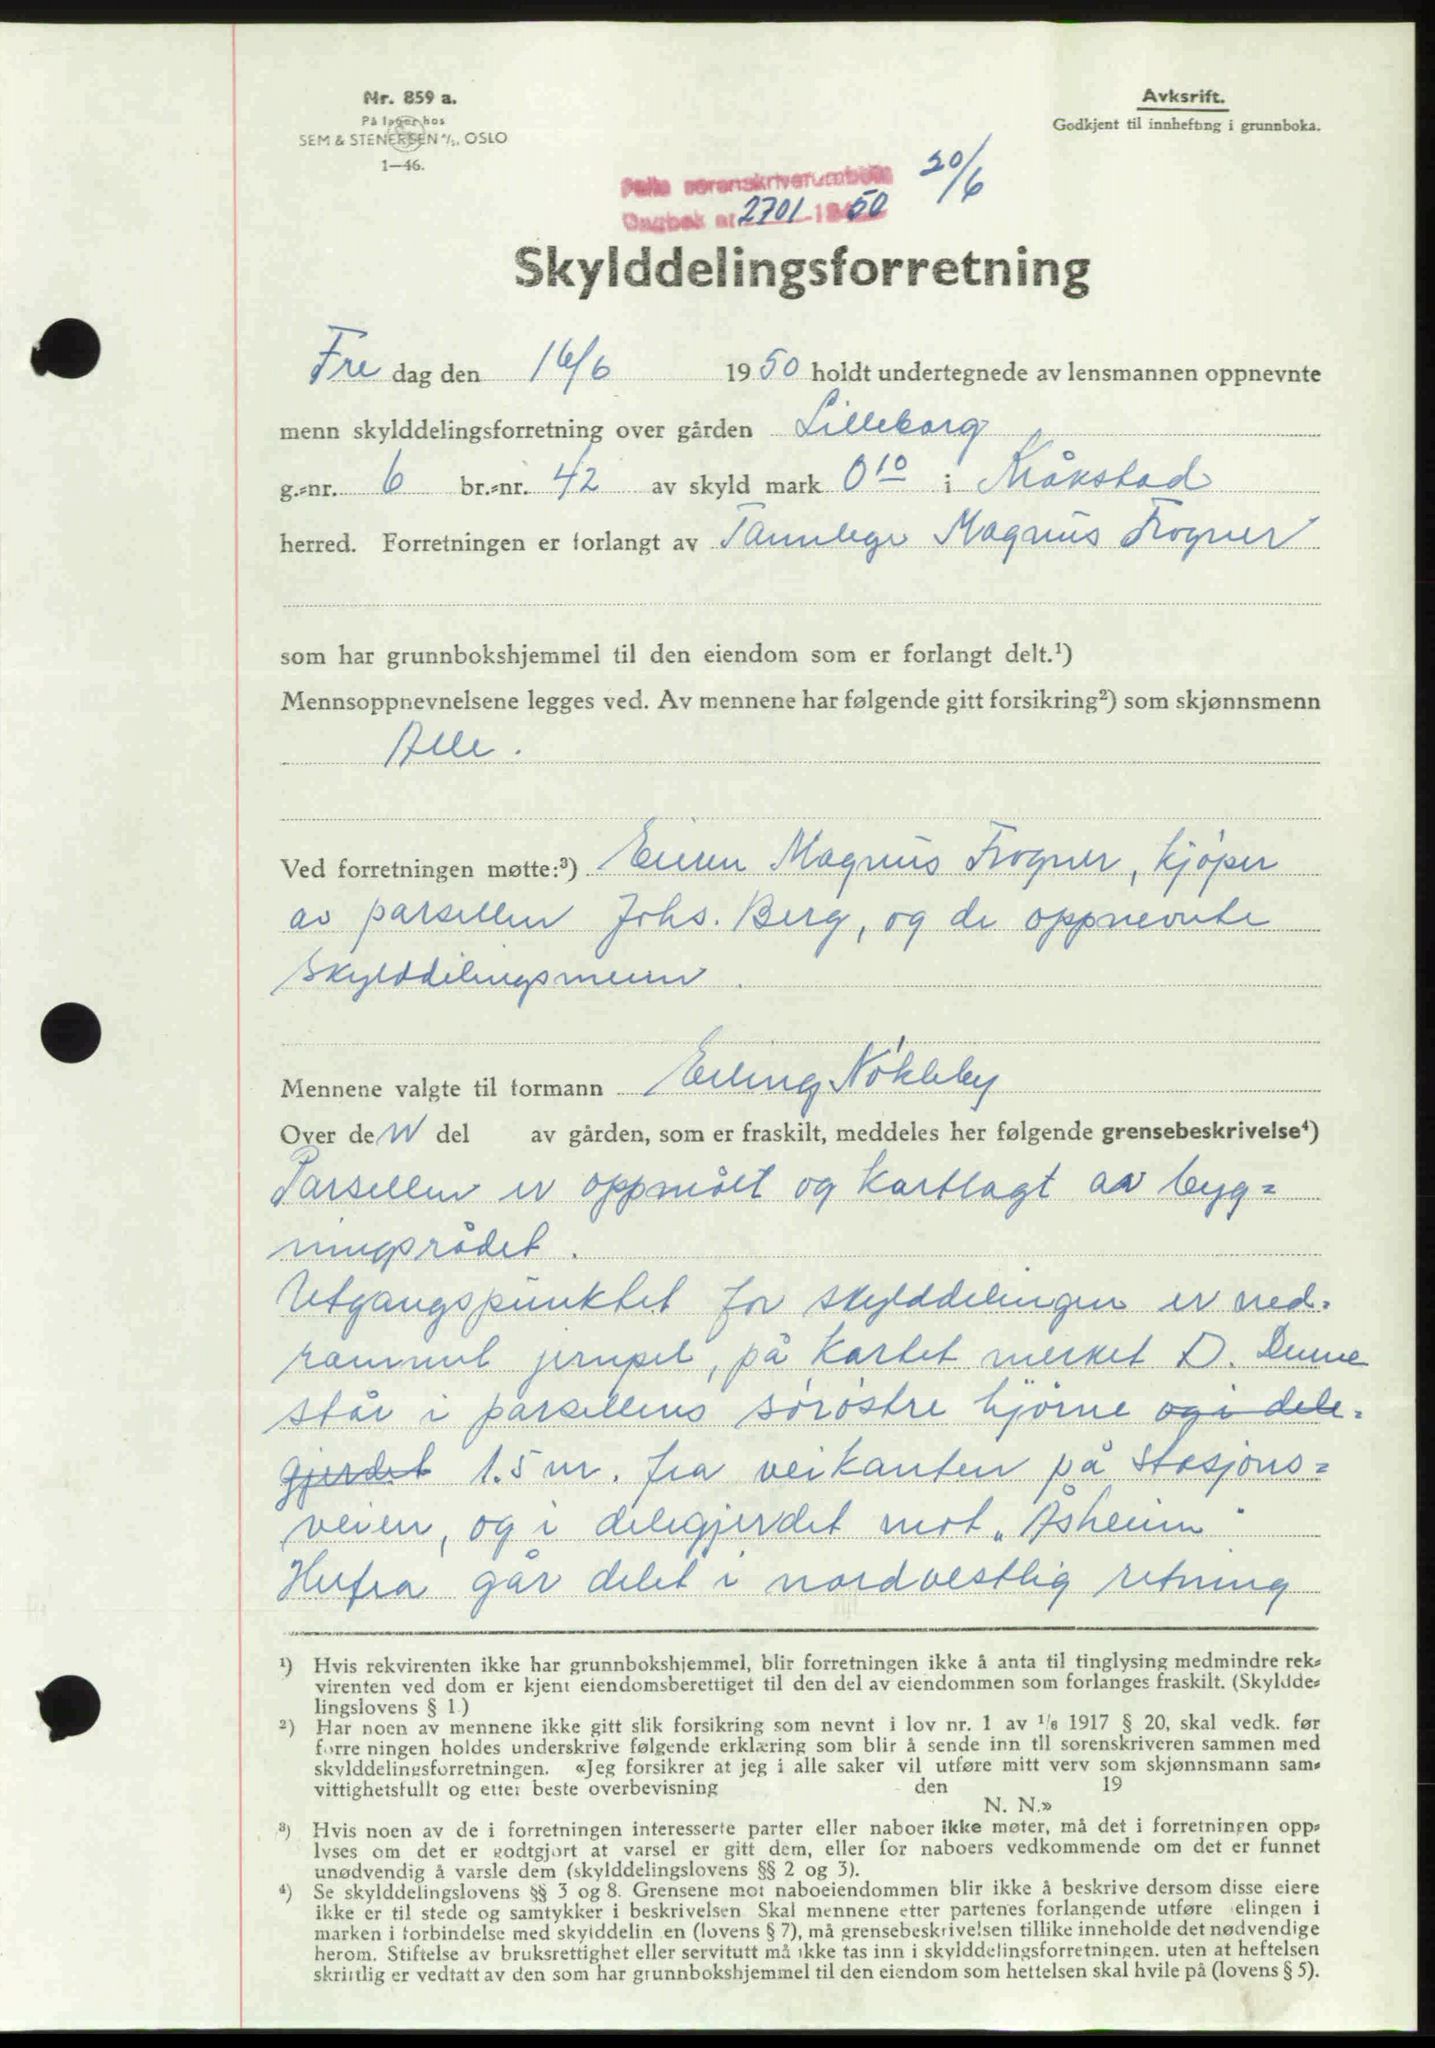 Nr. 859 a.
På lager hos
SEM & STENERSEN A/S, OSLO
1—46.
Avksrift.
Godkjent til innhefting i grunnboka.
20/6
sorenskriverembete
Dagbok nr 2701 - 1950
Skylddelingsforretning
Fre dag den 16/6 1950 holdt undertegnede av lensmannen oppnevnte
menn skylddelingsforretning over gården Lilleborg
g.=nr. 6 br.=nr. 42 av skyld mark 0 10 i Kråkstad
herred. Forretningen er forlangt av Tannlege Magnus Frogner
som har grunnbokshjemmel til den eiendom som er forlangt delt.¹)
Mennsoppnevnelsene legges ved. Av mennene har følgende gitt forsikring²) som skjønnsmenn
Alle.
Ved forretningen møtte:³) Eieren Magnus Frogner, kjøper
av parsellen Johs. Berg, og de oppnevnte
skylddelingsmenn.
Mennene valgte til formann Erling Nøkleby
Over den del av gården, som er fraskilt, meddeles her følgende grensebeskrivelse⁴)
Parsellen er oppmålt og kartlagt av byg=
ningsrådet.
Utgangspunktet for skylddelingen er ned=
rammet jernpel, på kartet merket D. Denne
står i parsellens sørøstre hjørne og i dele=
gjerdet 1.5 m. fra veikanten på Stasjons=
veien, og i delegjerdet mot „Åsheim"
Herfra går delet i nordvestlig retning
¹) Hvis rekvirenten ikke har grunnbokshjemmel, blir forretningen ikke å anta til tinglysing medmindre rek=
virenten ved dom er kjent eiendomsberettiget til den del av eiendommen som forlanges fraskilt. (Skyldde=
lingslovens § 1.)
²) Har noen av mennene ikke gitt slik forsikring som nevnt i lov nr. 1 av 1/6 1917 § 20, skal vedk. før
forre ningen holdes underskrive følgende erklæring som blir å sende inn til sorenskriveren sammen med
skylddelingsforretningen. «Jeg forsikrer at jeg i alle saker vil utføre mitt verv som skjønnsmann sam=
vittighetsfullt og etter beste overbevisning den 19
N. N.»
³) Hvis noen av de i forretningen interesserte parter eller naboer ikke møter, må det i forretningen opp=
lyses om det er godtgjort at varsel er gitt dem, eller for naboers vedkommende om det er funnet
unødvendig å varsle dem (skylddelingslovens §§ 2 og 3).
⁴) Se skylddelingslovens §§ 3 og 8. Grensene mot naboeiendommen blir ikke å beskrive dersom disse eiere
ikke er til stede og samtykker i beskrivelsen Skal mennene etter partenes forlangende utføre elingen i
marken i forbindelse med skylddelin en (lovens § 7), må grensebeskrivelsen tillike inneholde det nødvendige
herom. Stiftelse av bruksrettighet eller servitutt må ikke tas inn i skylddelingsforretningen. uten at heftelsen
skriftlig er vedtatt av den som har grunnbokshjemmel til den eiendom som heftelsen skal hvile på (lovens § 5).